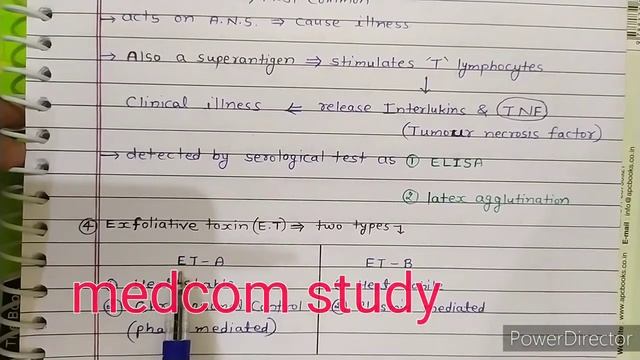 → acts on A.N.S. ⇒ cause illness
→ Also a superantigen ⇒ stimulates 'T' lymphocytes
↓
Clinical illness ⇐ release Interlukins & TNF
(Tumour necrosis factor)
→ detected by serological test as ① ELISA
② latex agglutination
④ Exfoliative toxin (E.T) ⇒ two types ↓
ET-A
ET-B
medcom study
Control
mediated
(mediated)
E-mail info@apcbooks.co.in
www.apcbooks.co.in
PowerDirector